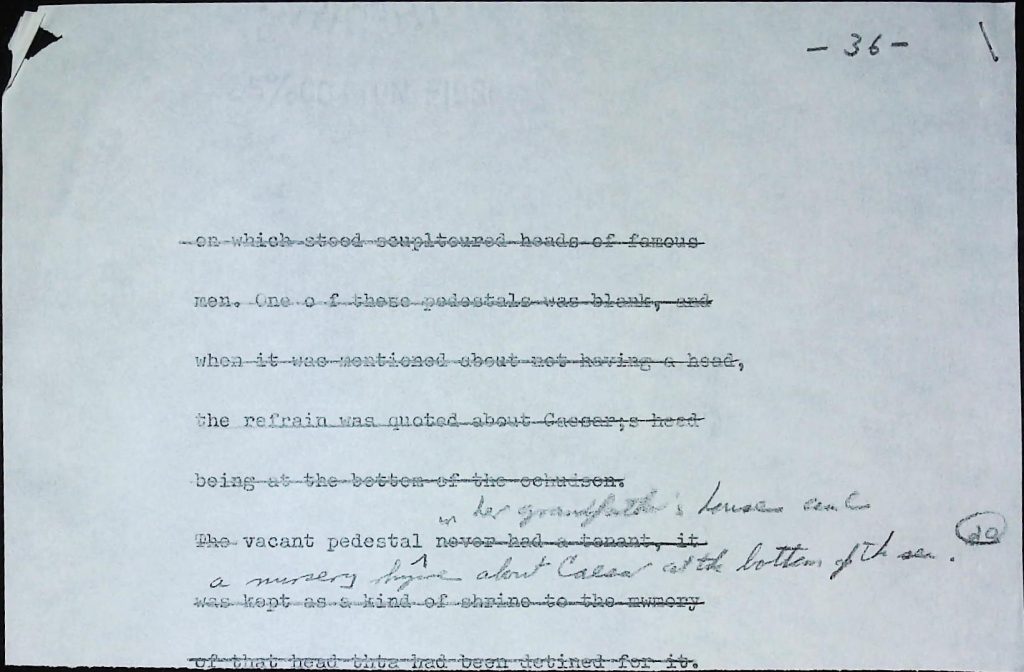 - 36 -
on which stood scupltoured heads of famous
men. One o f these pedestals was blank, and
when it was mentioned about not having a head,
the refrain was quoted about Caesar;s head
being at the bottom of the
in her grandfather's house
20
The vacant pedestal never had a tenant, it
a nursery rhyme about Caesar at the bottom of the sea.
was kept as a kind of shrine to the mwmory
of that head thta had been detined for it.